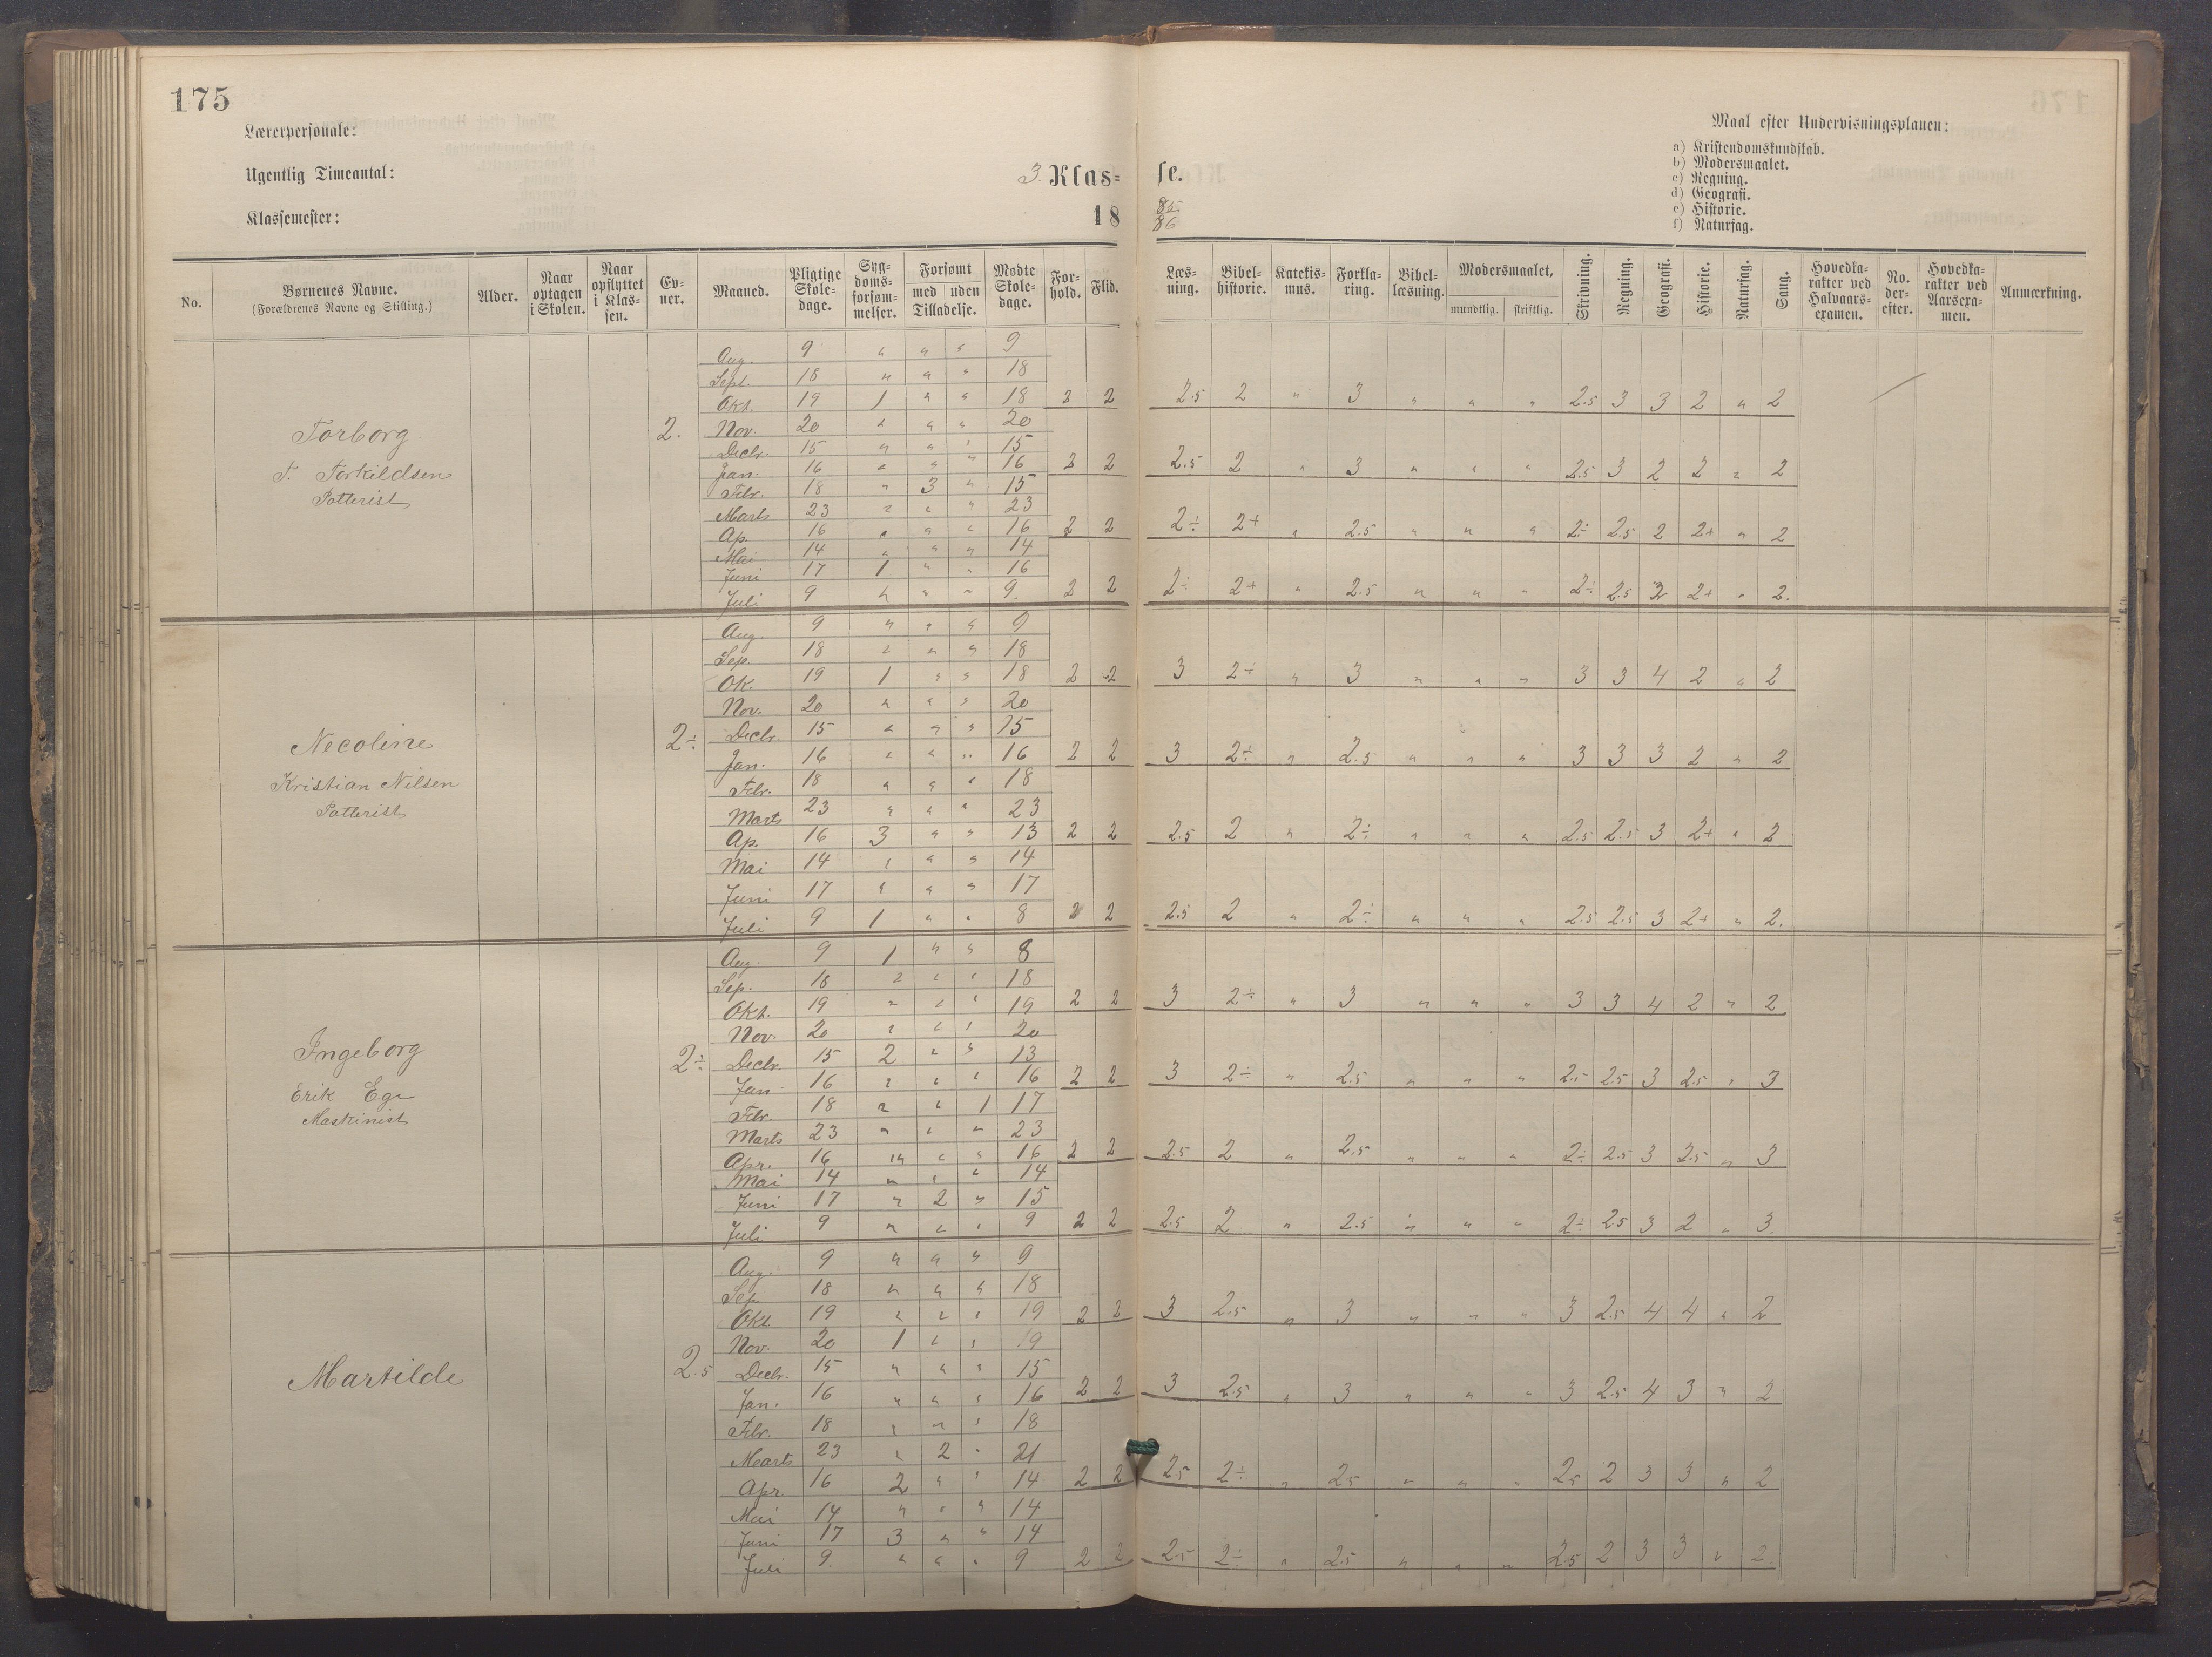 175
Lærerpersonale:
Ugentlig Timeantal:
Klassemester:
3. Klas= se.
18 85/86
Maal efter Undervisningsplanen:
a) Kristendomskundskab.
b) Modersmaalet.
c) Regning.
d) Geografi.
e) Historie.
f) Naturfag.
No. Børnenes Navne. (Forældrenes Navne og Stilling.) Alder. Naar optagen i Skolen. Naar opflyttet i Klassen. Evner. Maaned. Pligtige Skoledage. Sygdomsforsømmelser. Forsømt med uden Tilladelse. Mødte Skoledage. Forhold. Flid. Læsning. Bibelhistorie. Katekismus. Forklaring. Bibellæsning. Modersmaalet, mundtlig. skriftlig. Skrivning. Regning. Geografi. Historie. Naturfag. Sang. Hovedkarakter ved Halvaarsexamen. No. derefter. Hovedkarakter ved Aarsexamen. Anmærkning.
Torborg
T. Torkildsen
Potterist
2.
Aug. 9 " " " 9
Sept. 18 " " " 18
Okt. 19 1 " " 18 2 2 2.5 2 " 3 " " " 2.5 3 3 2 " 2
Nov. 20 " " " 20
Decbr. 15 " " " 15
Jan. 16 " " " 16 2 2 2.5 2 " 3 " " " 2.5 3 2 2 " 2
Febr. 18 " 3 " 15
Marts 23 " " " 23
Ap. 16 " " " 16 2 2 2÷ 2+ " 2.5 " " " 2÷ 2.5 2 2+ " 2
Mai 14 " " " 14
Juni 17 1 " " 16
Juli 9 " " " 9. 2 2 2÷ 2+ " 2.5 " " " 2÷ 2.5 2 2+ " 2.
Necoline
Kristian Nilsen
Potterist
2÷
Aug. 9 " " " 9
Sep. 18 " " " 18
Ok. 19 1 " " 18 2 2 3 2÷ " 3 " " " 3 3 4 2 " 2
Nov. 20 " " " 20
Decbr. 15 " " " 15
Jan. 16 " " " 16 2 2 3 2÷ " 2.5 " " " 3 3 3 2 " 2
Febr. 18 " " " 18
Marts 23 " " " 23
Ap. 16 3 " " 13 2 2 2.5 2 " 2÷ " " " 2.5 2.5 3 2+ " 2
Mai 14 " " " 14
Juni 17 " " " 17
Juli 9 1 " " 8 2 2 2.5 2 " 2÷ " " " 2.5 2.5 3 2+ " 2.
Ingeborg
Erik Ege
Maskinist
2÷
Aug. 9 1 " " 8
Sep. 18 " " " 18
Okt. 19 " " " 19 2 2 3 2÷ " 3 " " " 3 3 4 2 " 2
Nov. 20 " " " 20
Decbr. 15 2 " " 13
Jan 16 " " " 16 2 2 3 2÷ " 2.5 " " " 2.5 2.5 3 2.5 " 3
Febr. 18 " " 1 17
Marts 23 " " " 23
Apr. 16 " " " 16 2 2 2.5 2 " 2.5 " " " 2÷ 2.5 3 2.5 " 3
Mai 14 " " " 14
Juni 17 " 2 " 15
Juli 9 " " " 9 2 2 2.5 2 " 2.5 " " " 2÷ 2.5 3 2 " 3.
Martilde
2.5
Aug. 9 " " " 9
Sep. 18 " " " 18
Okt. 19 " " " 19 2 2 3 2.5 " 3 " " " 3 2.5 4 4 " 2
Nov. 20 1 " " 19
Decbr. 15 " " " 15
Jan. 16 " " " 16 2 2 3 2.5 " 3 " " " 3 2.5 4 3 " 2
Febr. 18 " " " 18
Marts 23 " 2 " 21
Apr. 16 2 " " 14 2 2 2.5 2÷ " 2.5 " " " 2.5 2 3 3 " 2
Mai 14 " " " 14
Juni 17 3 " " 14
Juli 9. " " " 9 2 2 2.5 2÷ " 2.5 " " " 2.5 2 3 3 " 2.